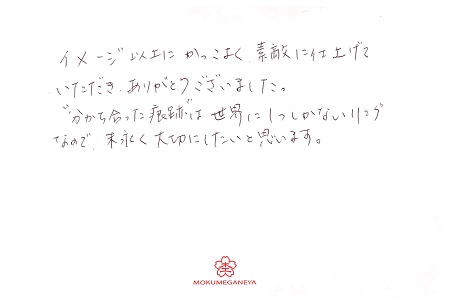 イメージ以上にかっこよく、素敵に仕上げて
いただき、ありがとうございました。
"分かち合った痕跡"は世界に1つしかないリング
なので、末永く大切にしたいと思います。
MOKUMEGANEYA